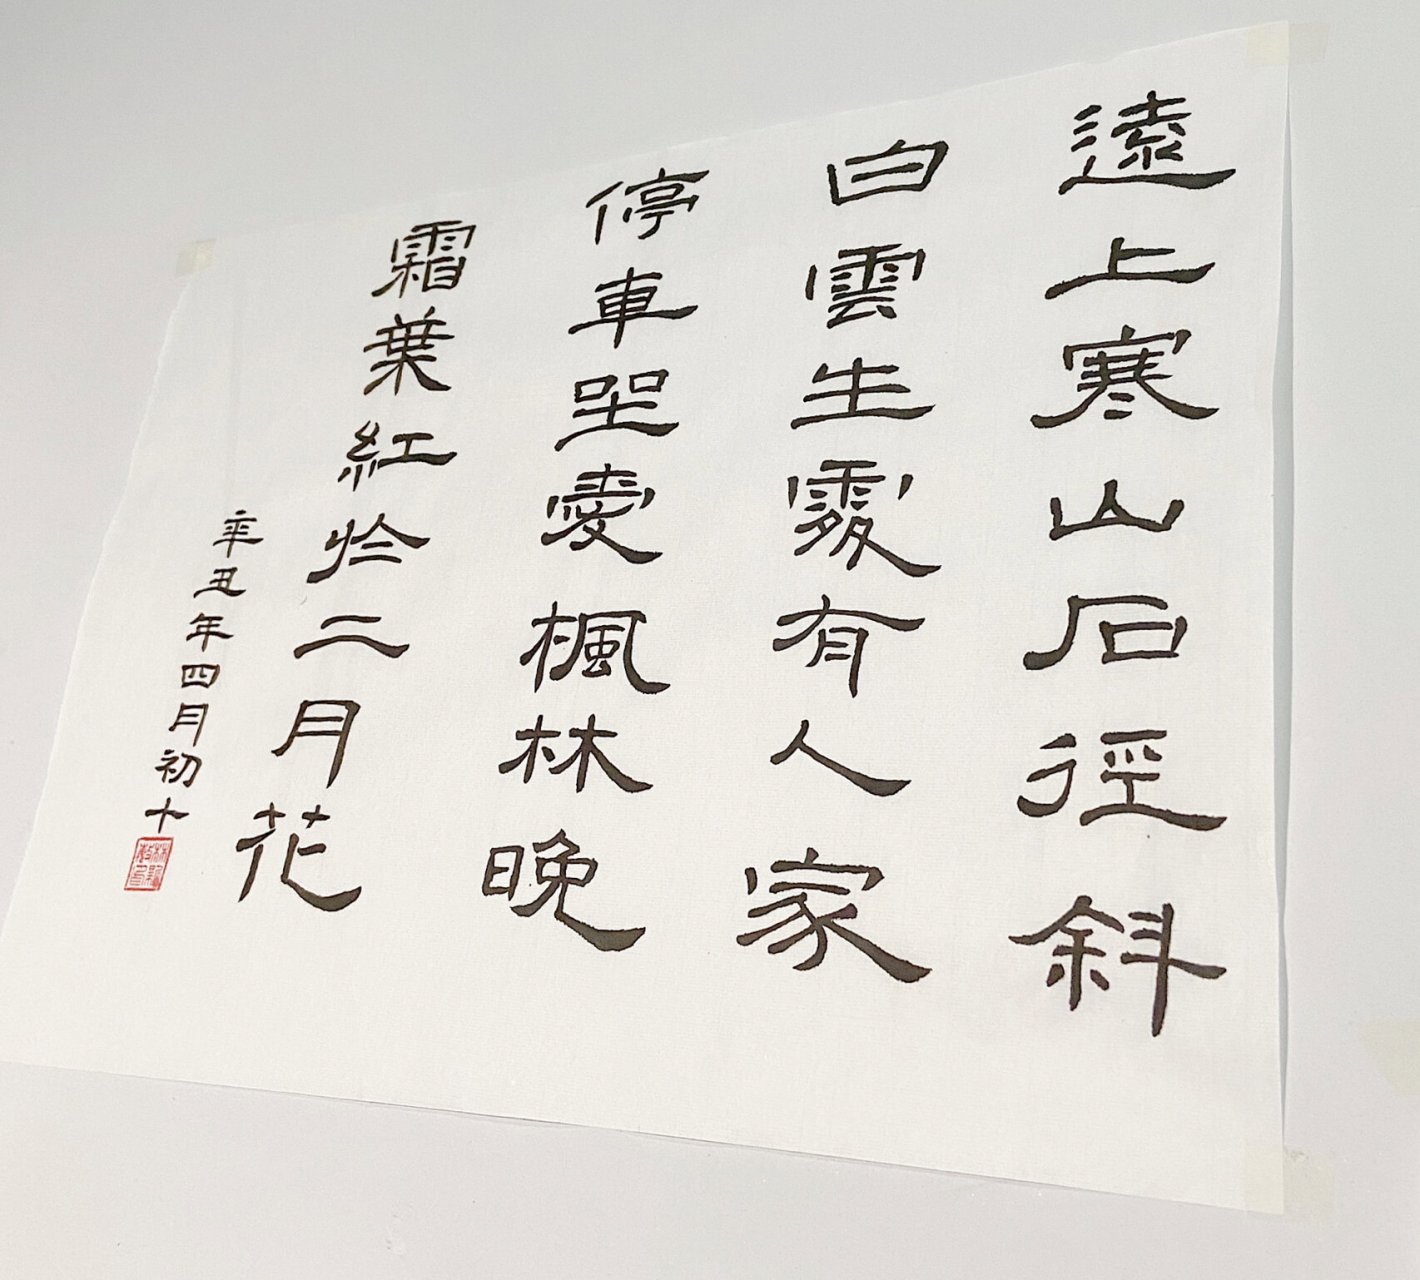 遠上寒山石徑斜
白雲生處有人家
停車坐愛楓林晚
霜葉紅於二月花
辛丑年四月初十